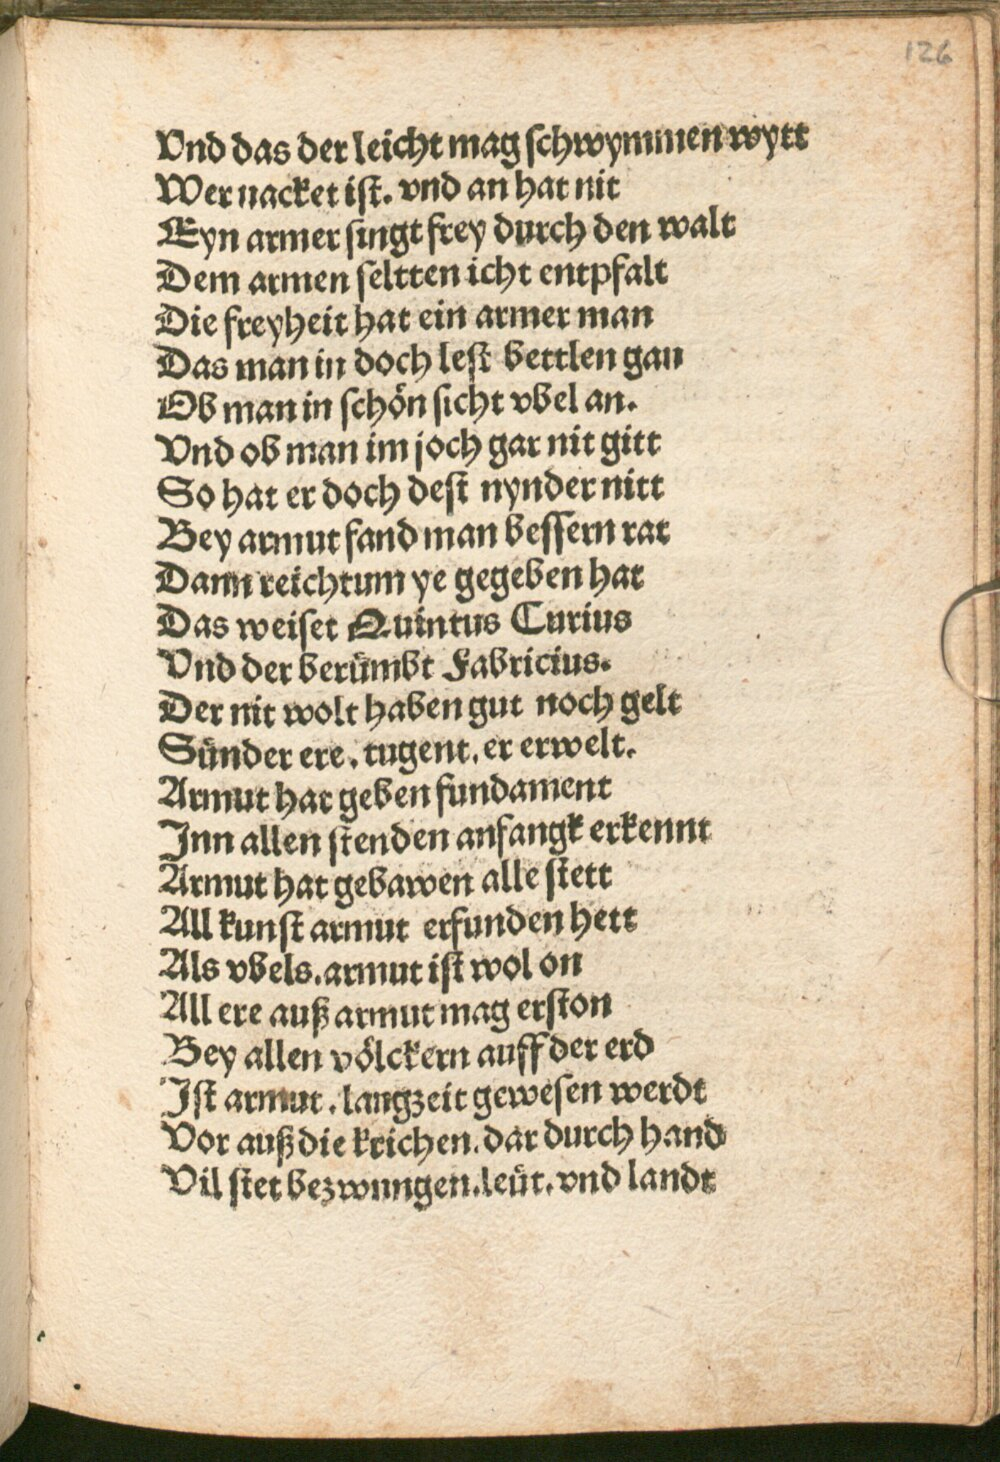 126
Vnd das der leicht mag schwymmen wytt
Wer nacket ist. vnd an hat nit
Eyn armer singt frey durch den walt
Dem armen seltten icht entpfalt
Die freyheit hat ein armer man
Das man in doch lest bettlen gan
Ob man in schön sicht vbel an.
Vnd ob man im joch gar nit gitt
So hat er doch dest nynder nitt
Bey armut fand man bessern rat
Dann reichtum ye gegeben hat
Das weiset Quintus Curius
Vnd der berümbt Fabricius.
Der nit wolt haben gut noch gelt
Sünder ere. tugent. er erwelt.
Armut hat geben fundament
Inn allen stenden anfangk erkennt
Armut hat gebawen alle stett
All kunst armut erfunden hett
Als vbels. armut ist wol on
All ere auß armut mag erston
Bey allen völckern auff der erd
Ist armut. langzeit gewesen werdt
Vor auß die krichen. dar durch hand
Vil stet bezwungen. leüt. vnd landt